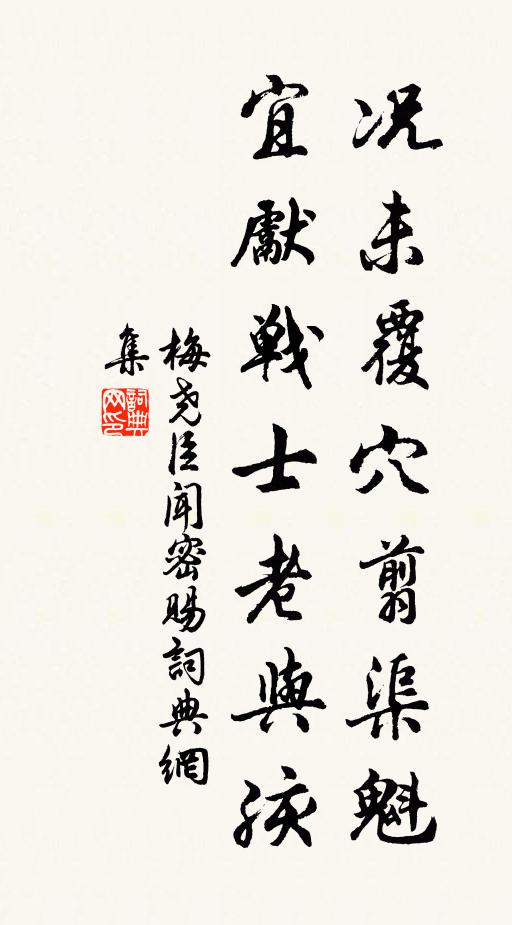 况未覆穴翦渠魁
宜獻戰士老與孩
梅尧臣闻密賜詞典網
集
詞典
网印